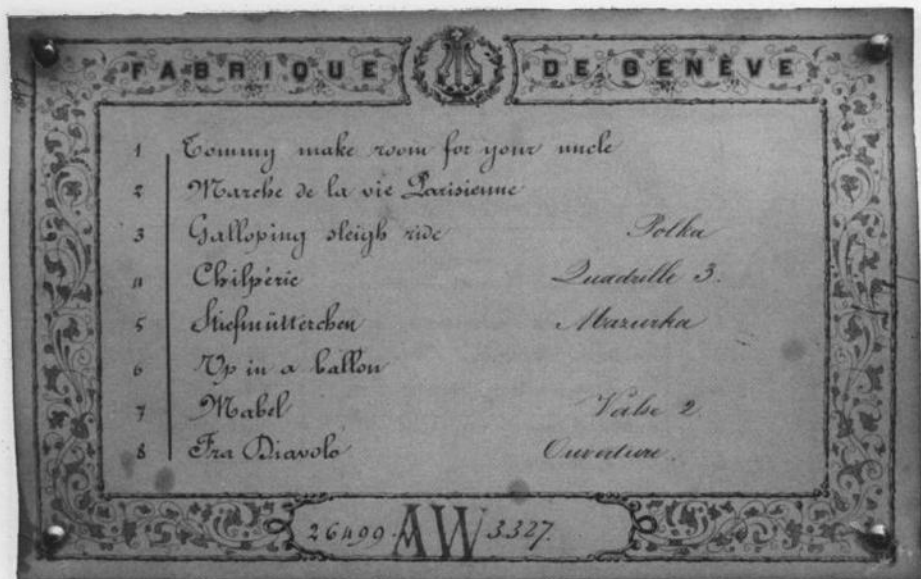 FABRIQUE DE GENÈVE
1 Tommy make room for your uncle
2 Marche de la vie Parisienne
3 Galloping sleigh ride Polka
4 Chilpéric Quadrille 3.
5 Stiefmütterchen Mazurka
6 Up in a ballon
7 Mabel Valse 2
8 Fra Diavolo Ouverture.
26499. AW 3327.